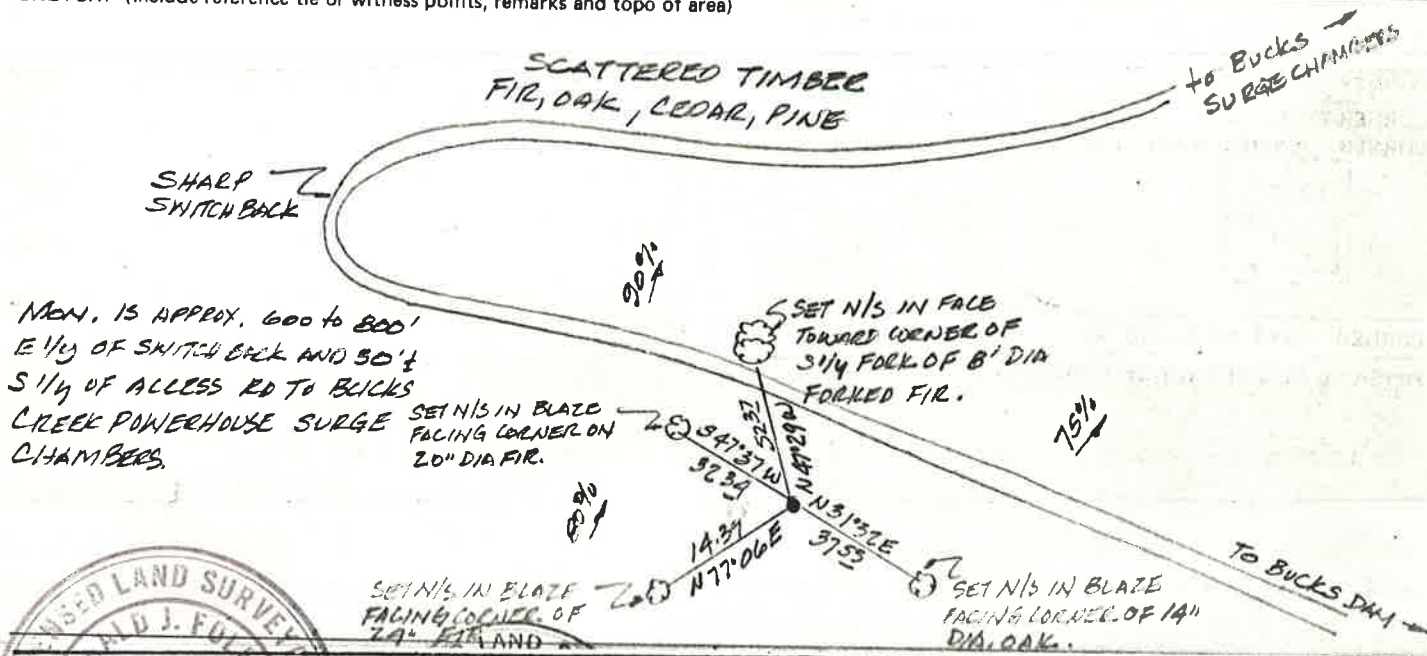 (Include reference tie or witness points, remarks and topo of area)
to Bucks
SURGE CHAMBERS
SCATTERED TIMBER
FIR, OAK, CEDAR, PINE
SHARP
SWITCHBACK
90%
MON. IS APPROX. 600 to 800'
E'ly OF SWITCH BACK AND 30'±
S'ly OF ACCESS RD TO BUCKS
CREEK POWERHOUSE SURGE
CHAMBERS.
SET N/S IN FACE
TOWARD CORNER OF
S'ly FORK OF 8' DIA
FORKED FIR.
SET N/S IN BLAZE
FACING CORNER ON
20" DIA FIR.
75%
S47°37'W
32.34
52.37
N47°29'W
80%
14.39
N77°06E
N31°32E
37.53
TO BUCKS DAM
SET N/S IN BLAZE
FACING CORNER OF
24"
SET N/S IN BLAZE
FACING CORNER OF 14"
DIA. OAK.
LAND SURVEY
J.
LAND